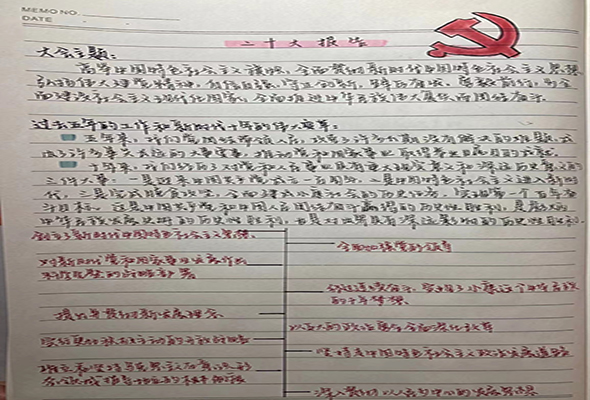 MEMO NO.
DATE
二十大报告
大会主题:
高举中国特色社会主义旗帜,全面贯彻新时代中国特色社会主义思想,
弘扬伟大建党精神,自信自强、守正创新,踔厉奋发、勇毅前行,为全
面建设社会主义现代化国家、全面推进中华民族伟大复兴而团结奋斗
过去五年的工作和新时代十年的伟大变革:
五年来,我们党团结带领人民,攻克了许多长期没有解决的难题,办
成了许多事关长远的大事要事,推动党和国家事业取得举世瞩目的成就。
十年来,我们经历了对党和人民事业具有重大现实意义和深远历史意义的
三件大事:一是迎来中国共产党成立一百周年,二是中国特色社会主义进入新时
代,三是完成脱贫攻坚、全面建成小康社会的历史任务,实现第一个百年奋
斗目标。这是中国共产党和中国人民团结奋斗赢得的历史性胜利,是彪炳
中华民族发展史册的历史性胜利,也是对世界具有深远影响的历史性胜利.
创立了新时代中国特色社会主义思想、
全面加强党的领导
对新时代党和国家事业发展作出
科学完整的战略部署
的千年梦想、
提出并贯彻新发展理念
实行更加积极主动的开放战略
坚持走中国特色社会主义政治发展道路